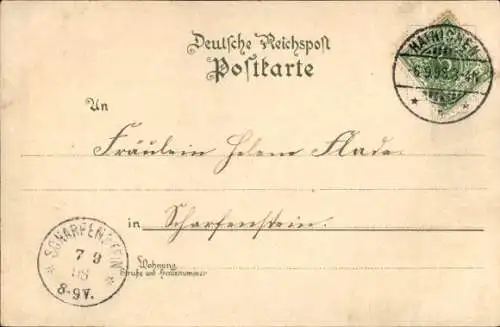 Deutsche Reichspost
Postkarte
An
Fräulein Helene Flade.
in Scharfenstein.
Wohnung
Straße und Hausnummer
SCHARFENSTEIN
7 9
98
8-9V.
6.9.98.3-4N